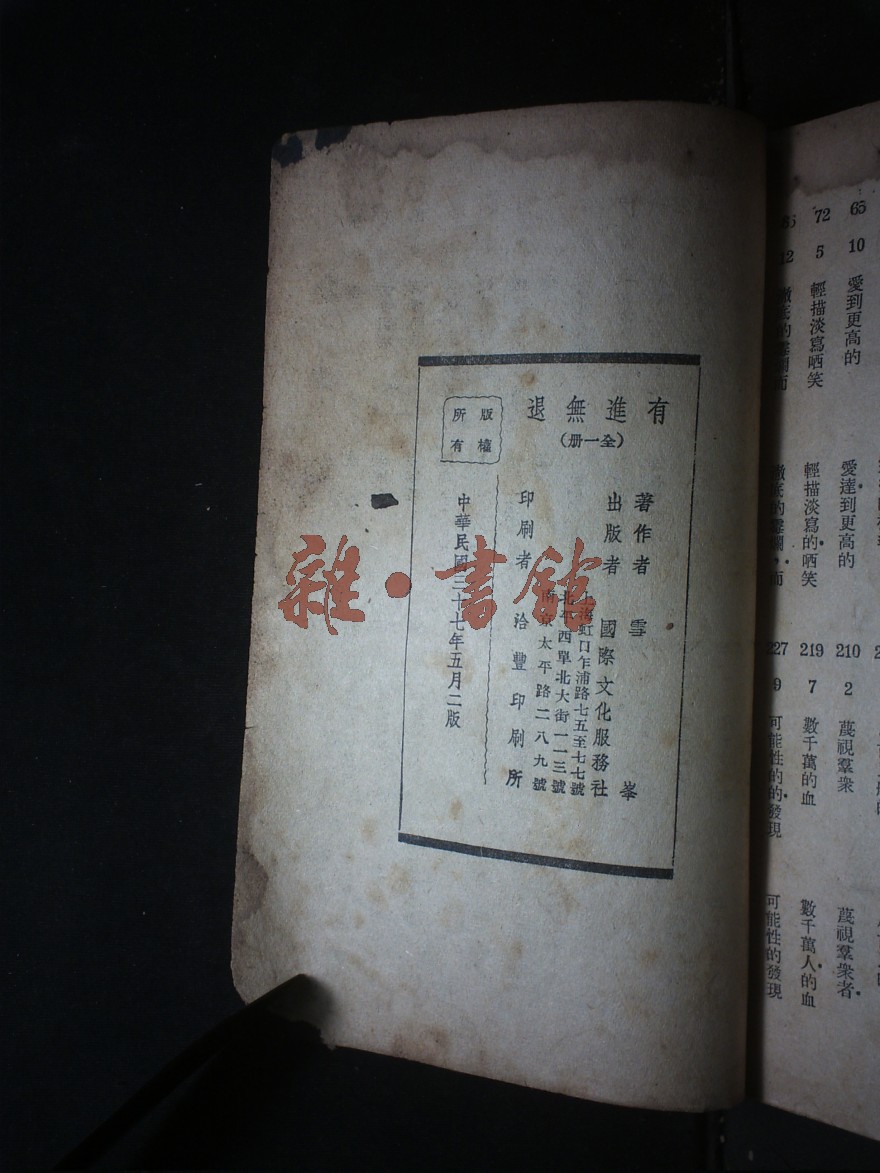 65
10
愛到更高的
愛達到更高的
210
2
蔑視羣衆
蔑視羣衆者
72
5
輕描淡寫哂笑
輕描淡寫的哂笑
219
7
數千萬的血
數千萬人的血
徹底的
徹底的
227
9
可能性的的發現
可能性的發現
有進無退
(全一册)
著作者 雪峯
出版者 國際文化服務社
上海虹口乍浦路七五至七七號
北平西單北大街一一三號
南京太平路二八九號
印刷者 洽豐印刷所
版權
所有
中華民國三十七年五月二版
雜·書館